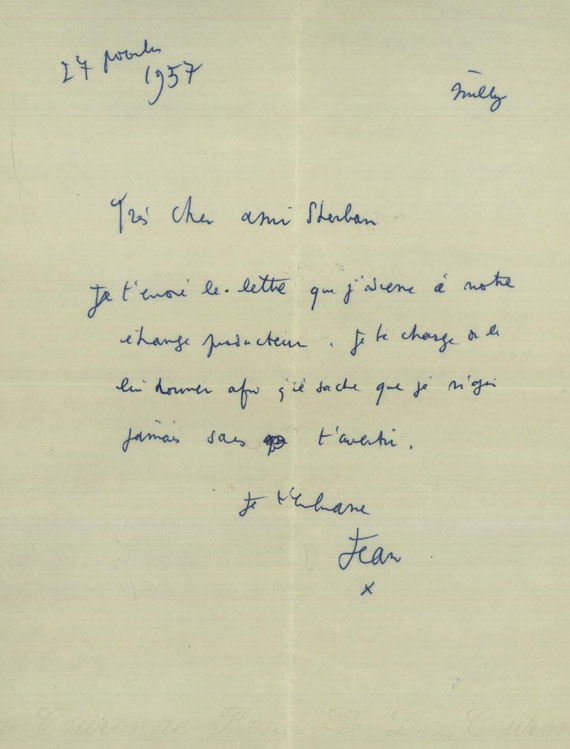 27 novembre
1957
Milly
Très cher ami Sherban
Je t'envoie la lettre que j'adresse à notre
étrange producteur. Je te charge de la
lui donner afin qu'il sache que je n'agis
jamais sans t'avertir.
Je t'embrasse
Jean
x
Couronne